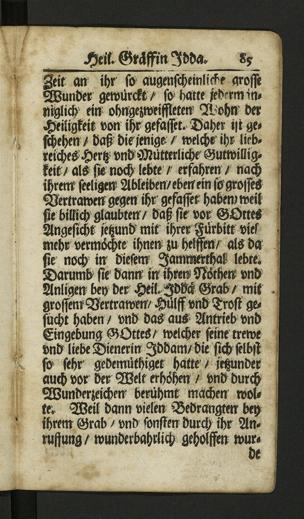 Heil. Gräffin Jdda. 85
Zeit an ihr so augenscheinliche grosse
Wunder gewürckt / so hatte jederm in-
niglich ein ohngezweiffleten Wohn der
Heiligkeit von ihr gefasset. Daher ist ge-
schehen / daß die jenige / welche ihr lieb-
reiches Hertz vnd Mütterliche Gutwillig-
keit / als sie noch lebte / erfahren / nach
ihrem seeligen Ableiben / eben ein so grosses
Vertrawen gegen ihr gefasset haben / weil
sie billich glaubten / daß sie vor GOttes
Angesicht jetzund mit ihrer Fürbitt viel
mehr vermöchte ihnen zu helffen / als da
sie noch in diesem Jammerthal lebte.
Darumb sie dann in ihren Nöthen vnd
Anligen bey der Heil. Jdda Grab / mit
grossem Vertrawen / Hülff vnd Trost ge-
sucht haben / vnd das aus Antrieb vnd
Eingebung GOttes / welcher seine trewe
vnd liebe Dienerin Jddam / die sich selbst
so sehr gedemüthiget hatte / jetzunder
auch vor der Welt erhöhen / vnd durch
Wunderzeichen berühmt machen wol-
te. Weil dann vielen Bedrangten bey
ihrem Grab / vnd sonsten durch ihr An-
ruffung / wunderbahrlich geholffen wur-
de